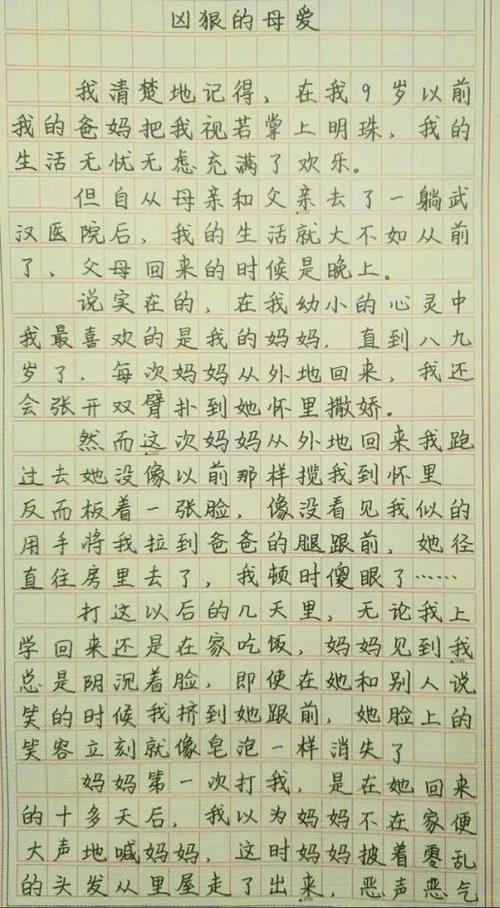 凶狠的母爱
我清楚地记得，在我9岁以前
我的爸妈把我视若掌上明珠，我的
生活无忧无虑充满了欢乐。
但自从母亲和父亲去了一躺武
汉医院后，我的生活就大不如从前
了、父母回来的时候是晚上。
说实在的，在我幼小的心灵中
我最喜欢的是我的妈妈，直到八九
岁了．每次妈妈从外地回来，我还
会张开双臂扑到她怀里撒娇。
然而这次妈妈从外地回来我跑
过去她没像以前那样揽我到怀里
反而板着一张脸，像没看见我似的
用手将我拉到爸爸的腿跟前，她径
直往房里去了，我顿时傻眼了……
打这以后的几天里，无论我上
学回来还是在家吃饭，妈妈见到我
总是阴沉着脸，即使在她和别人说
笑的时候我挤到她跟前，她脸上的
笑容立刻就像皂泡一样消失了
妈妈第一次打我，是在她回来
的十多天后，我以为妈妈不在家便
大声地喊妈妈，这时妈妈披着零乱
的头发从里屋走了出来，恶声恶气